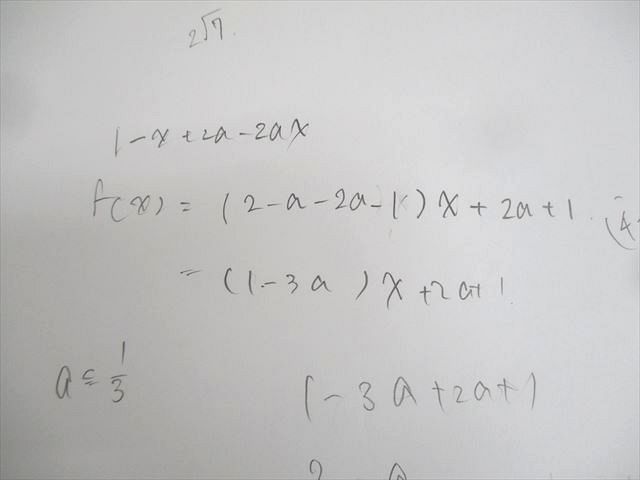 2√7.
1-x+2a-2ax
f(x) = (2-a-2a-1)x+2a+1. (4
= (1-3a)x+2a+1.
a≦1/3
1-3a+2a+1
2 a